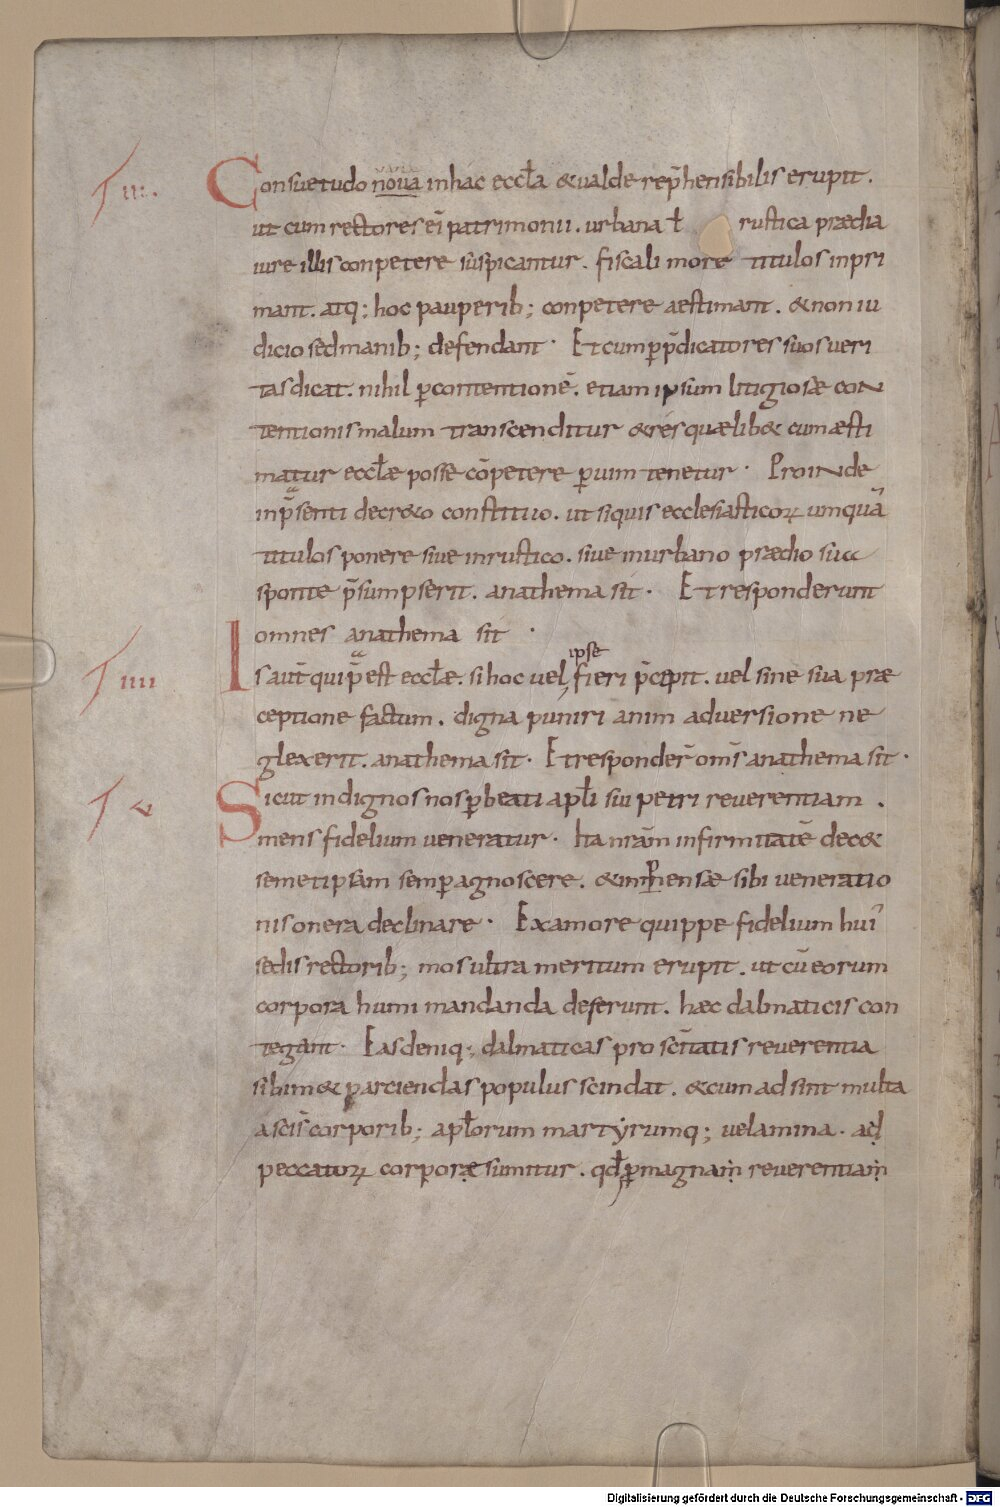 T III.
Consuetudo noua in hac eccła & ualde rep̄hensibilis erupit.
ut cum rectores ei patrimonii. urbana ł rustica prædia
iure illis conpetere suspicantur. fiscali more titulos inpri
mant. atq; hoc pauperib; conpetere aestimant. & non iu
dicio sed manib; defendant. Et cum p̱p̄dicatores suos ueri
tas dicat. nihil ꝑ contentionē. etiam ipsum litigiosæ con
tentionis malum transcenditur & res quælib& cum æsti
matur eccłæ posse cōpetere ꝑ uim tenetur. Proinde
inp̄senti decr&o constituo. ut siquis ecclesiasticoꝝ umquā
titulos ponere siue in rustico. siue in urbano prædio sua
sponte p̄sumpserit. anathema sit. Et responderunt
omnes anathema sit.
T IIII
Is aut̄ qui p̄est eccłæ. si hoc uel ipse fieri p̄cepit. uel sine sua præ
ceptione factum. digna puniri animaduersione ne
glexerit. anathema sit. Et responder̄ om̄s anathema sit.
T V
Sicut indignos nos ꝑ beati apłi sui petri reuerentiam.
mens fidelium ueneratur. Ita nr̄am infirmitatē dec&
semetipsam semꝑ agnoscere. & impensæ sibi ueneratio
nis onera declinare. Ex amore quippe fidelium hui᾽
sedis rectorib; mos ultra meritum erupit. ut cū eorum
corpora humi mandanda deferunt. hæc dalmaticis con
tegant. Easdemq; dalmaticas pro sc̄itatis reuerentia
sibim& parciendas populus scindat. & cum adsint multa
a sc̄is corporib; apłorum martyrumq; uelamina. ad
peccatoꝝ corporæ sumitur. qđ ꝑ magnam reuerentiam